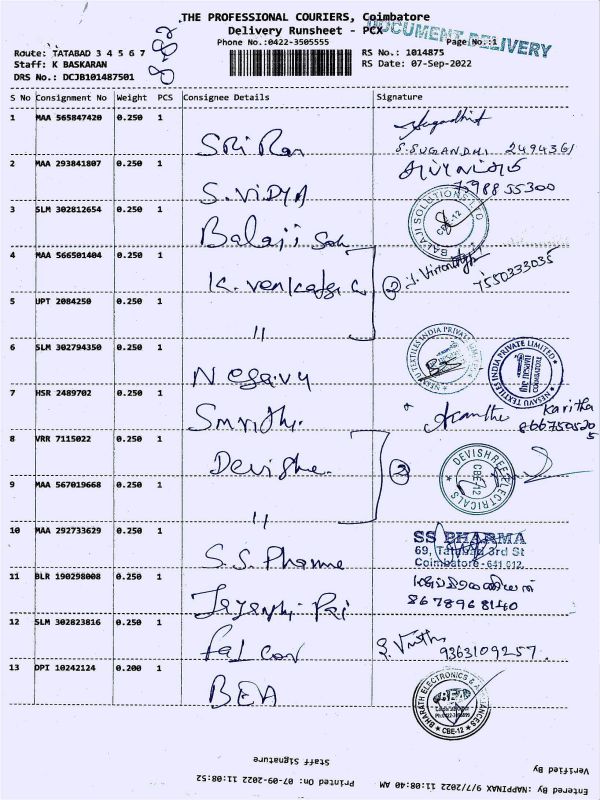 THE PROFESSIONAL COURIERS, Coimbatore
Delivery Runsheet - PCX
DOCUMENT DELIVERY
Phone No.:0422-3505555
Page No.:1
Route: TATABAD 3 4 5 6 7
RS No.: 1014875
Staff: K BASKARAN
RS Date: 07-Sep-2022
DRS No.: DCJB101487501
S No Consignment No Weight PCS Consignee Details Signature
1 MAA 565847420 0.250 1
S.SUGANDHI 2494361
2 MAA 293841807 0.250 1 S.ViDYA
7598855300
3 SLM 302812654 0.250 1 Balaji
BALAJI SOLUTIONS LTD CBE-12
4 MAA 566501404 0.250 1 K. Venkates
2 7550333035
5 UPT 2084250 0.250 1 "
6 SLM 302794350 0.250 1 Nesavu
NESAVU TEXTILES INDIA PRIVATE LIMITED
NESAVU TEXTILES INDIA PRIVATE LIMITED
7 HSR 2489702 0.250 1 Smrithi.
Kavitha
8 VRR 7115022 0.250 1 Devishree
2
DEVISHREE ELECTRICALS CBE-12
9 MAA 567019668 0.250 1 "
10 MAA 292733629 0.250 1 S.S. Pharma
SS PHARMA
69, Tatabad 3rd St
Coimbatore - 641 012.
11 BLR 190298008 0.250 1
8678968140
12 SLM 302823816 0.250 1 falcon
9363109257
13 DPI 10242124 0.200 1
BHARATH ELECTRONICS & APPLIANCES
CBE-12
Staff Signature
Verified By
Printed On: 07-09-2022 11:08:52
Entered By :NAPPINAX 9/7/2022 11:08:40 AM